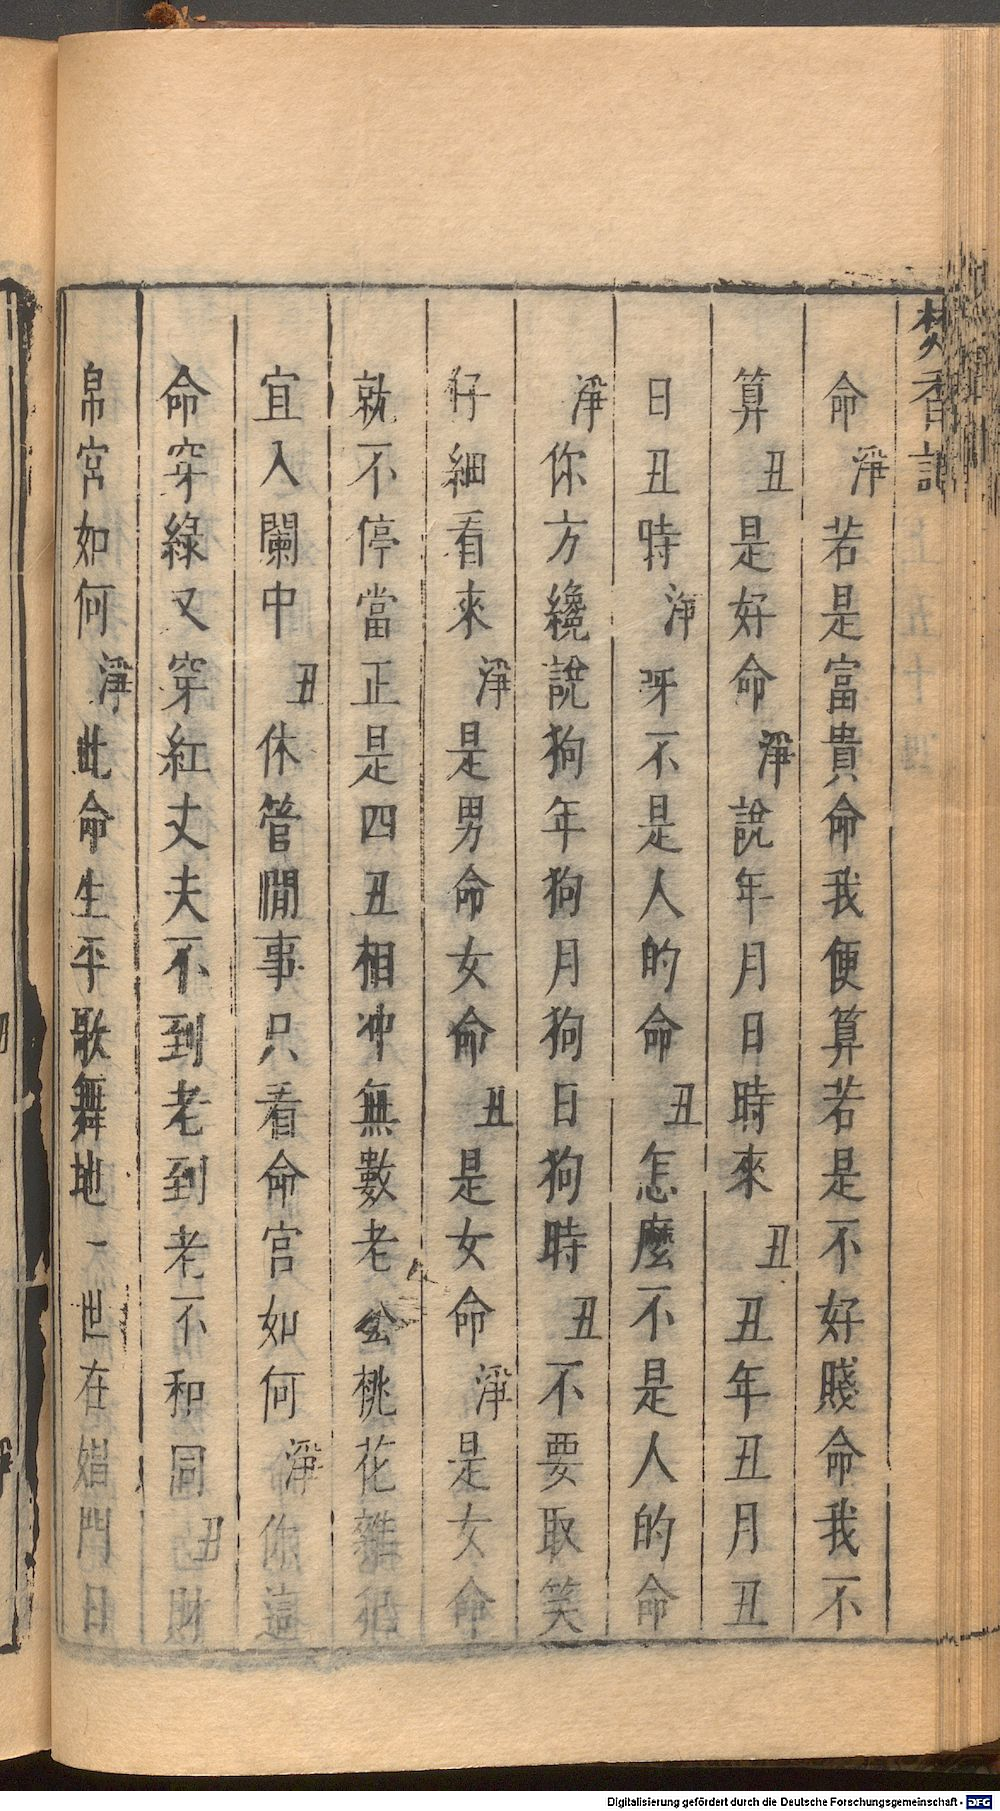 焚香記
命淨若是富貴命我便算若是不好賤命我不
算丑是好命淨說年月日時來丑丑年丑月丑
日丑時淨呀不是人的命丑怎麼不是人的命
淨你方纔說狗年狗月狗日狗時丑不要取笑
仔細看來淨是男命女命丑是女命淨是女命
就不停當正是四丑相冲無數老公桃花雜犯
宜入闌中丑休管閒事只看命宮如何淨你這
命穿綠又穿紅丈夫不到老到老不和同丑財
帛宮如何淨此命生平歌舞地一世在娼門日
Digitalisierung gefördert durch die Deutsche Forschungsgemeinschaft - DFG